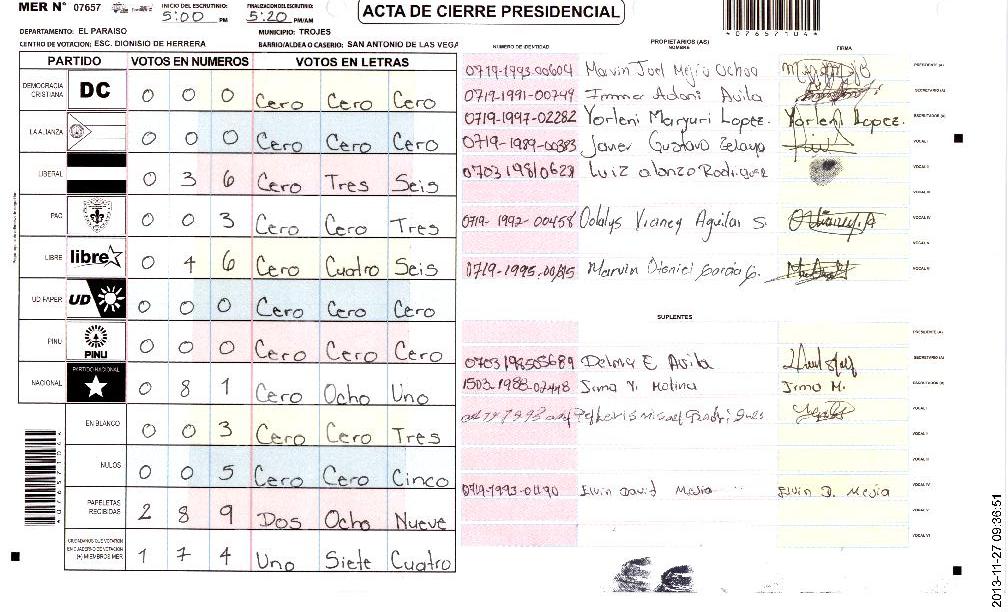 MER N° 07657
INICIO DEL ESCRUTINIO: 5:00 PM
FINALIZACION DEL ESCRUTINIO: 5:20 PM/AM
ACTA DE CIERRE PRESIDENCIAL
DEPARTAMENTO: EL PARAISO
MUNICIPIO: TROJES
CENTRO DE VOTACION: ESC. DIONISIO DE HERRERA
BARRIO/ALDEA O CASERIO: SAN ANTONIO DE LAS VEGA
4076571044
PARTIDO VOTOS EN NUMEROS VOTOS EN LETRAS
DEMOCRACIA CRISTIANA DC 0 0 0 Cero Cero Cero
LA ALIANZA 0 0 0 Cero Cero Cero
LIBERAL 0 3 6 Cero Tres Seis
PAC 0 0 3 Cero Cero Tres
LIBRE libre 0 4 6 Cero Cuatro Seis
UD FAPER UD 0 0 0 Cero Cero Cero
PINU PINU 0 0 0 Cero Cero Cero
NACIONAL PARTIDO NACIONAL 0 8 1 Cero Ocho Uno
EN BLANCO 0 0 3 Cero Cero Tres
NULOS 0 0 5 Cero Cero Cinco
PAPELETAS RECIBIDAS 2 8 9 Dos Ocho Nueve
CIUDADANOS QUE VOTARON EN CUADERNO DE VOTACION (+) MIEMBROS MER 1 7 4 Uno Siete Cuatro
NUMERO DE IDENTIDAD PROPIETARIOS (AS) NOMBRE FIRMA
0719-1993-00604 Marvin Joel Mejia Ochoa PRESIDENTE (A)
0719-1991-00749 Adoni Avila SECRETARIO (A)
0719-1997-02282 Yorleni Maryuri Lopez. Yorleni Lopez. ESCRUTADOR (A)
0719-1989-00383 Javier Gustavo Zelaya VOCAL I
0703 1981 0628 Luiz alonzo Rodriguez VOCAL II
VOCAL III
0719-1992-00458 Odalys Vianey Aguilar S. VOCAL IV
VOCAL V
0719-1995-00185 Marvin Otoniel Garcia G. VOCAL VI
SUPLENTES
PRESIDENTE (A)
0703198505689 Delmy E Avila SECRETARIO (A)
1503-1988-02448 Irma Y. Molina Irma M. ESCRUTADOR (A)
VOCAL I
VOCAL II
VOCAL III
0719-1993-01190 Elvin David Mesia Elvin D. Mesia VOCAL IV
VOCAL V
VOCAL VI
4076571044
2013-11-27 09:36:51